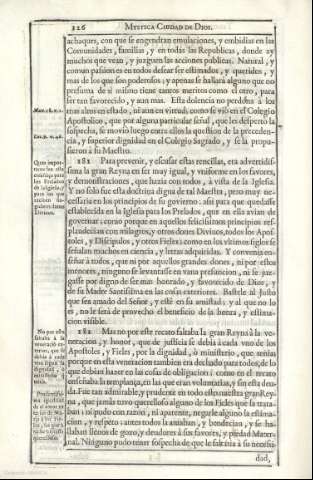 326 MYSTICA CIUDAD DE DIOS.
achaques, con que se engendran emulaciones, y embidias en las
Comunidades, familias, y en todas las Republicas, donde ay
muchos que vean, y juzguen las acciones publicas. Natural, y
comun passion es en todos dessear ser estimados, y queridos, y
mas de los que son poderosos; y apenas se hallarà alguno que no
presuma de si mismo tiene tantos meritos como el otro, para
ser tan favorecido, y aun mas. Esta dolencia no perdona à los
mas altos en estado, ni aun en virtud; como se viò en el Colegio
Apostolico, que por alguna particular señal, que les despertò la
sospecha, se moviò luego entre ellos la question de la preceden-
cia, y superior dignidad en el Colegio Sagrado, y se la propu-
sieron à su Maestro.
181 Para prevenir, y escusar estas rencillas, era advertidis-
sima la gran Reyna en ser muy igual, y vniforme en los favores,
y demonstraciones, que hazia con todos, à vista de la Iglesia.
Y no solo fue esta doctrina digna de tal Maestra, pero muy ne-
cessaria en los principios de su govierno: assi para que quedasse
establecida en la Iglesia para los Prelados, que en ella avian de
governar; como porque en aquellos felicissimos principios res-
plandecian con milagros, y otros dones Divinos, todos los Apos-
toles, y Discipulos, y otros Fieles; como en los vltimos siglos se
señalan muchos en ciencia, y letras adquiridas. Y convenia en-
señar à todos, que ni por aquellos grandes dones, ni por estos
menores, ninguno se levantasse en vana presuncion, ni se juz-
gasse por digno de ser mas honrado, y favorecido de Dios, y
de su Madre Santissima en las cosas exteriores. Bastele al Justo
que sea amado del Señor, y estè en su amistad: y al que no lo
es, no le serà de provecho el beneficio de la honra, y estima-
cion visible.
182 Mas no por este recato faltaba la gran Reyna à la ve-
neracion, y honor, que de justicia se debia à cada vno de los
Apostoles, y Fieles, por la dignidad, ò ministerio, que tenian
porque en esta veneracion tambien era dechado para todos, de lo
que debian hazer en las cosas de obligacion; como en el recato
enseñaba la templança, en las que eran voluntarias, y sin esta deu-
da. Fue tan admirable, y prudente en todo esto nuestra gran Rey-
na, que jamàs tuvo querelloso alguno de los Fieles que la trata-
ban; ni pudo con razon, ni aparente, negarle alguno la estima-
cion, y respeto; antes todos la amaban, y bendecian, y se ha-
llaban llenos de gozo, y deudores à sus favores, y piedad Mater-
nal. Ninguno pudo tener sospecha de que le faltaria à su necessi-
dad,